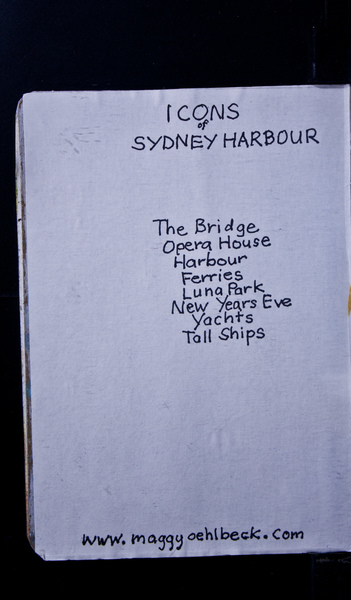 ICONS
of
SYDNEY HARBOUR
The Bridge
Opera House
Harbour
Ferries
Luna Park
New Years Eve
Yachts
Tall Ships
www.maggyoehlbeck.com